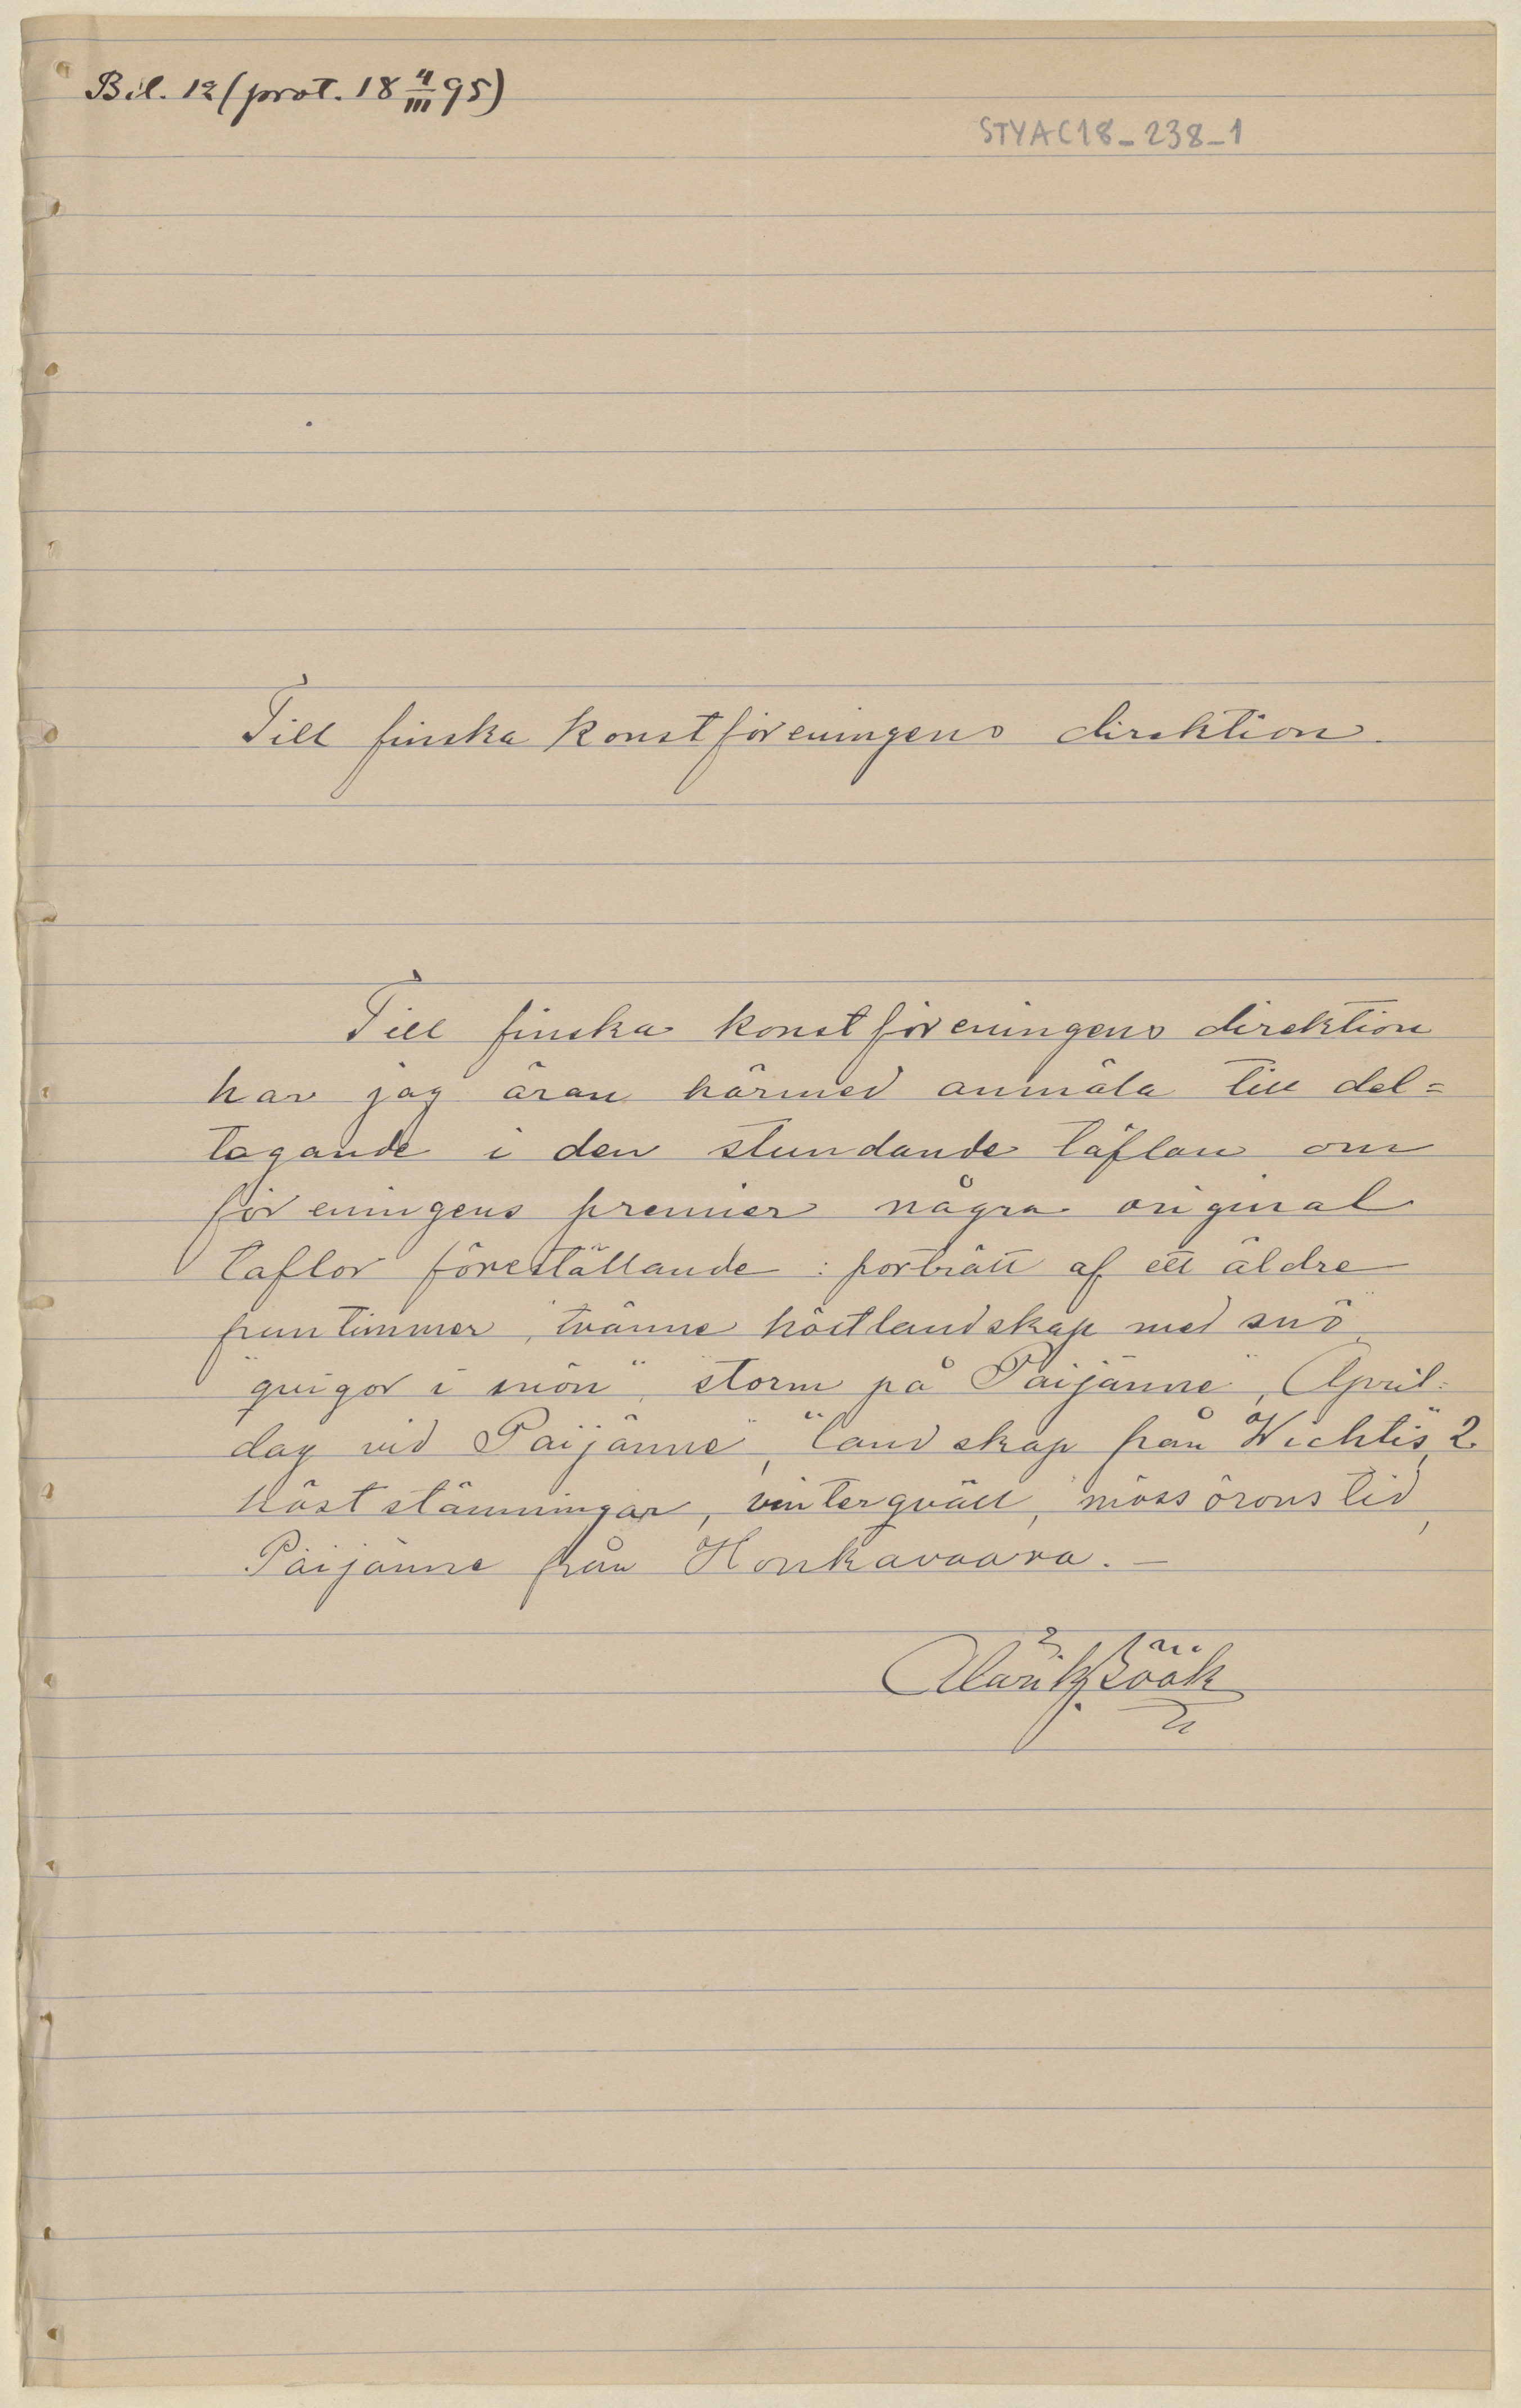 Bil. 12 (prot. 18 4/III 95)
STYAC18_238_1
Till finska konstföreningens direktion.
Till finska konstföreningens direktion
har jag äran härmed anmäla till del=
tagande i den stundande täflan om
föreningens premier några original
taflor föreställande: porträtt af ett äldre
fruntimmer, tvänne höstlandskap med snö,
"qvigor i snön", storm på Päijänne", April=
dag vid Päijänne", "landskap från Wichtis", 2
höststämningar, vinterqväll, mössörons tid,
Päijänne från Honkavaara. —
Alarik Böök